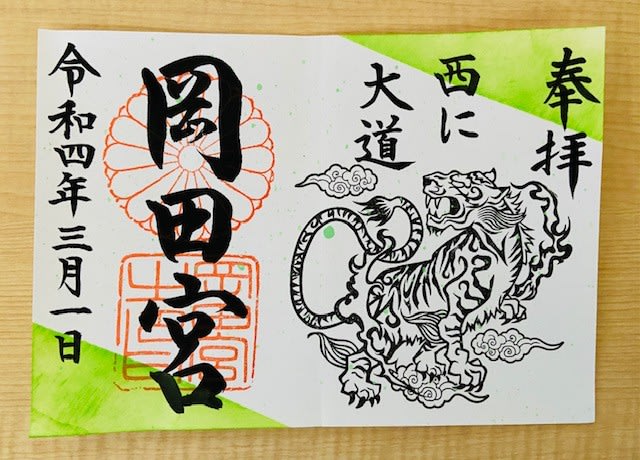 奉拝
西に
大道
岡田宮
令和四年三月一日